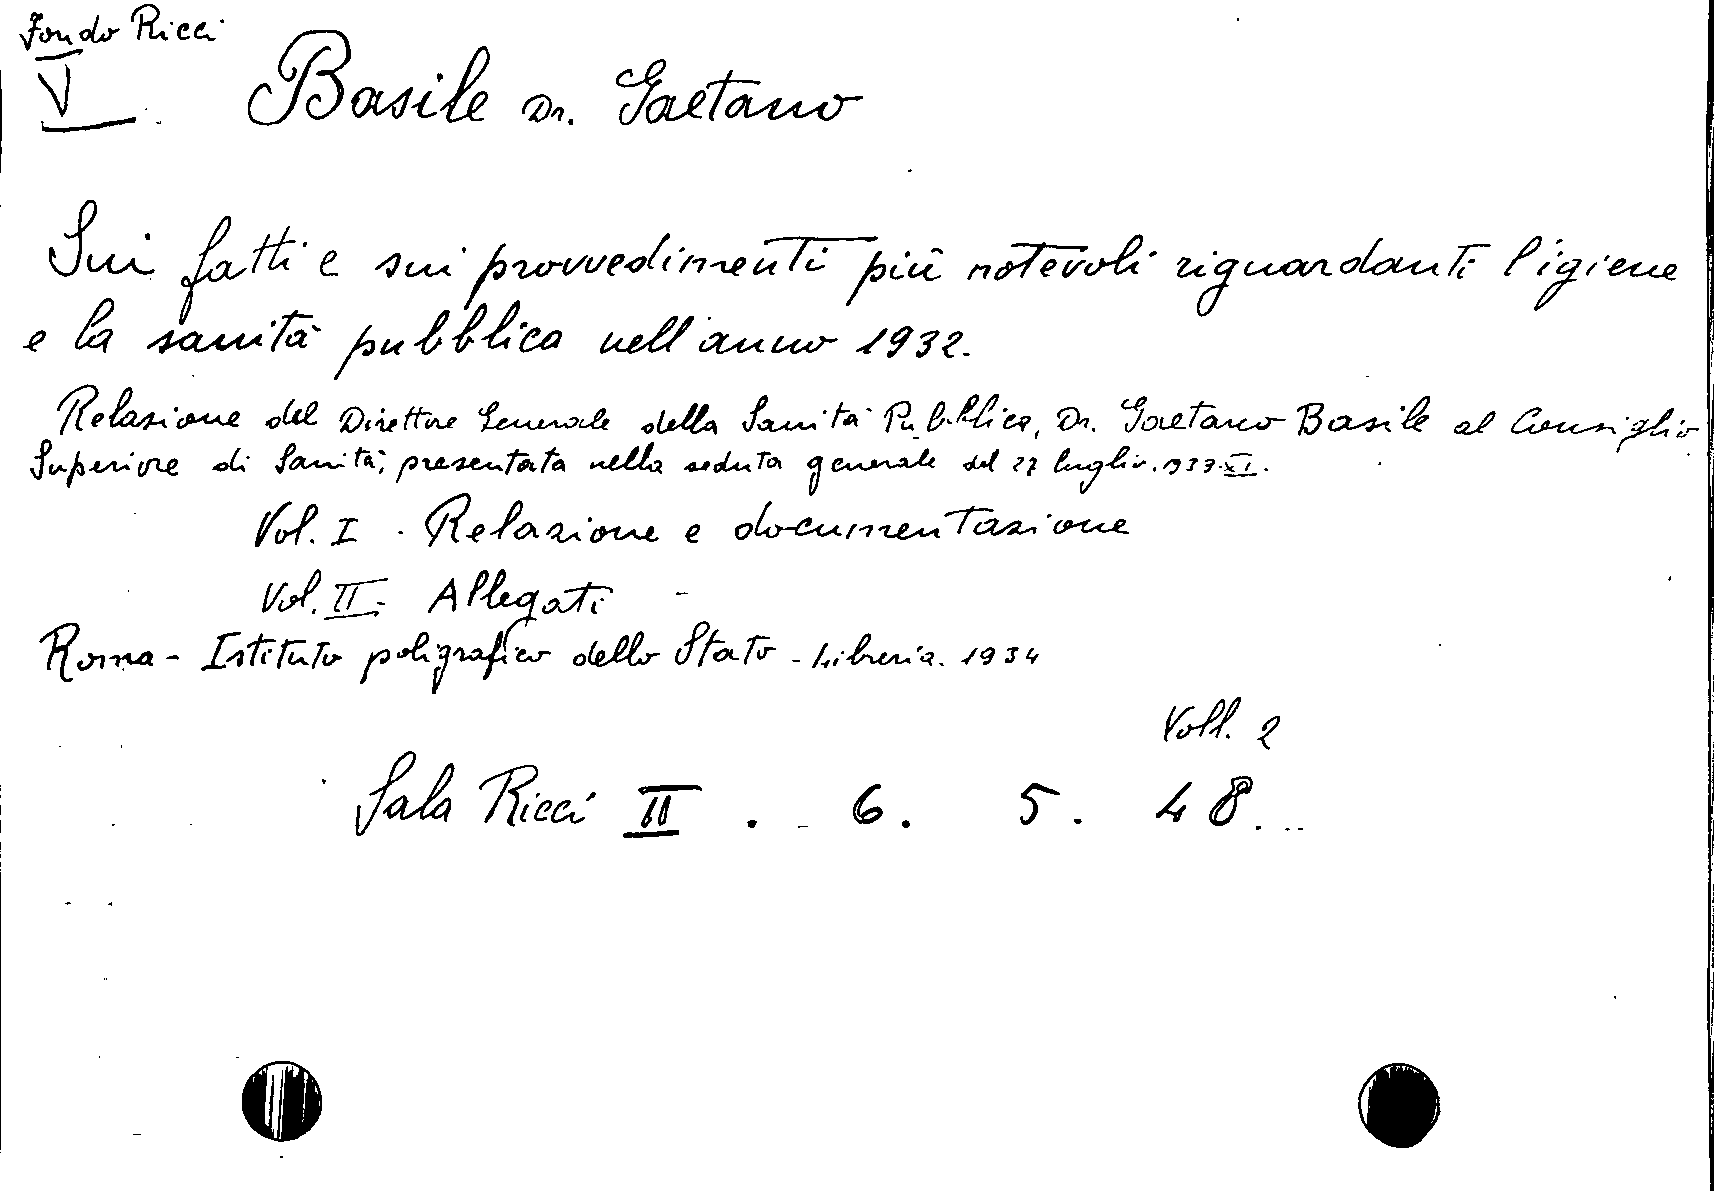 Fondo Ricci
V
Basile Dr. Gaetano
Sui fatti e sui provvedimenti più notevoli riguardanti l'igiene
e la sanità pubblica nell'anno 1932.
Relazione del Direttore Generale della Sanità Pubblica, Dr. Gaetano Basile al Consiglio
Superiore di Sanità, presentata nella seduta generale del 27 luglio. 1933. XI.
Vol. I - Relazione e documentazione
Vol. II - Allegati -
Roma - Istituto poligrafico dello Stato - Libreria. 1934
Voll. 2
Sala Ricci II . 6. 5. 48.